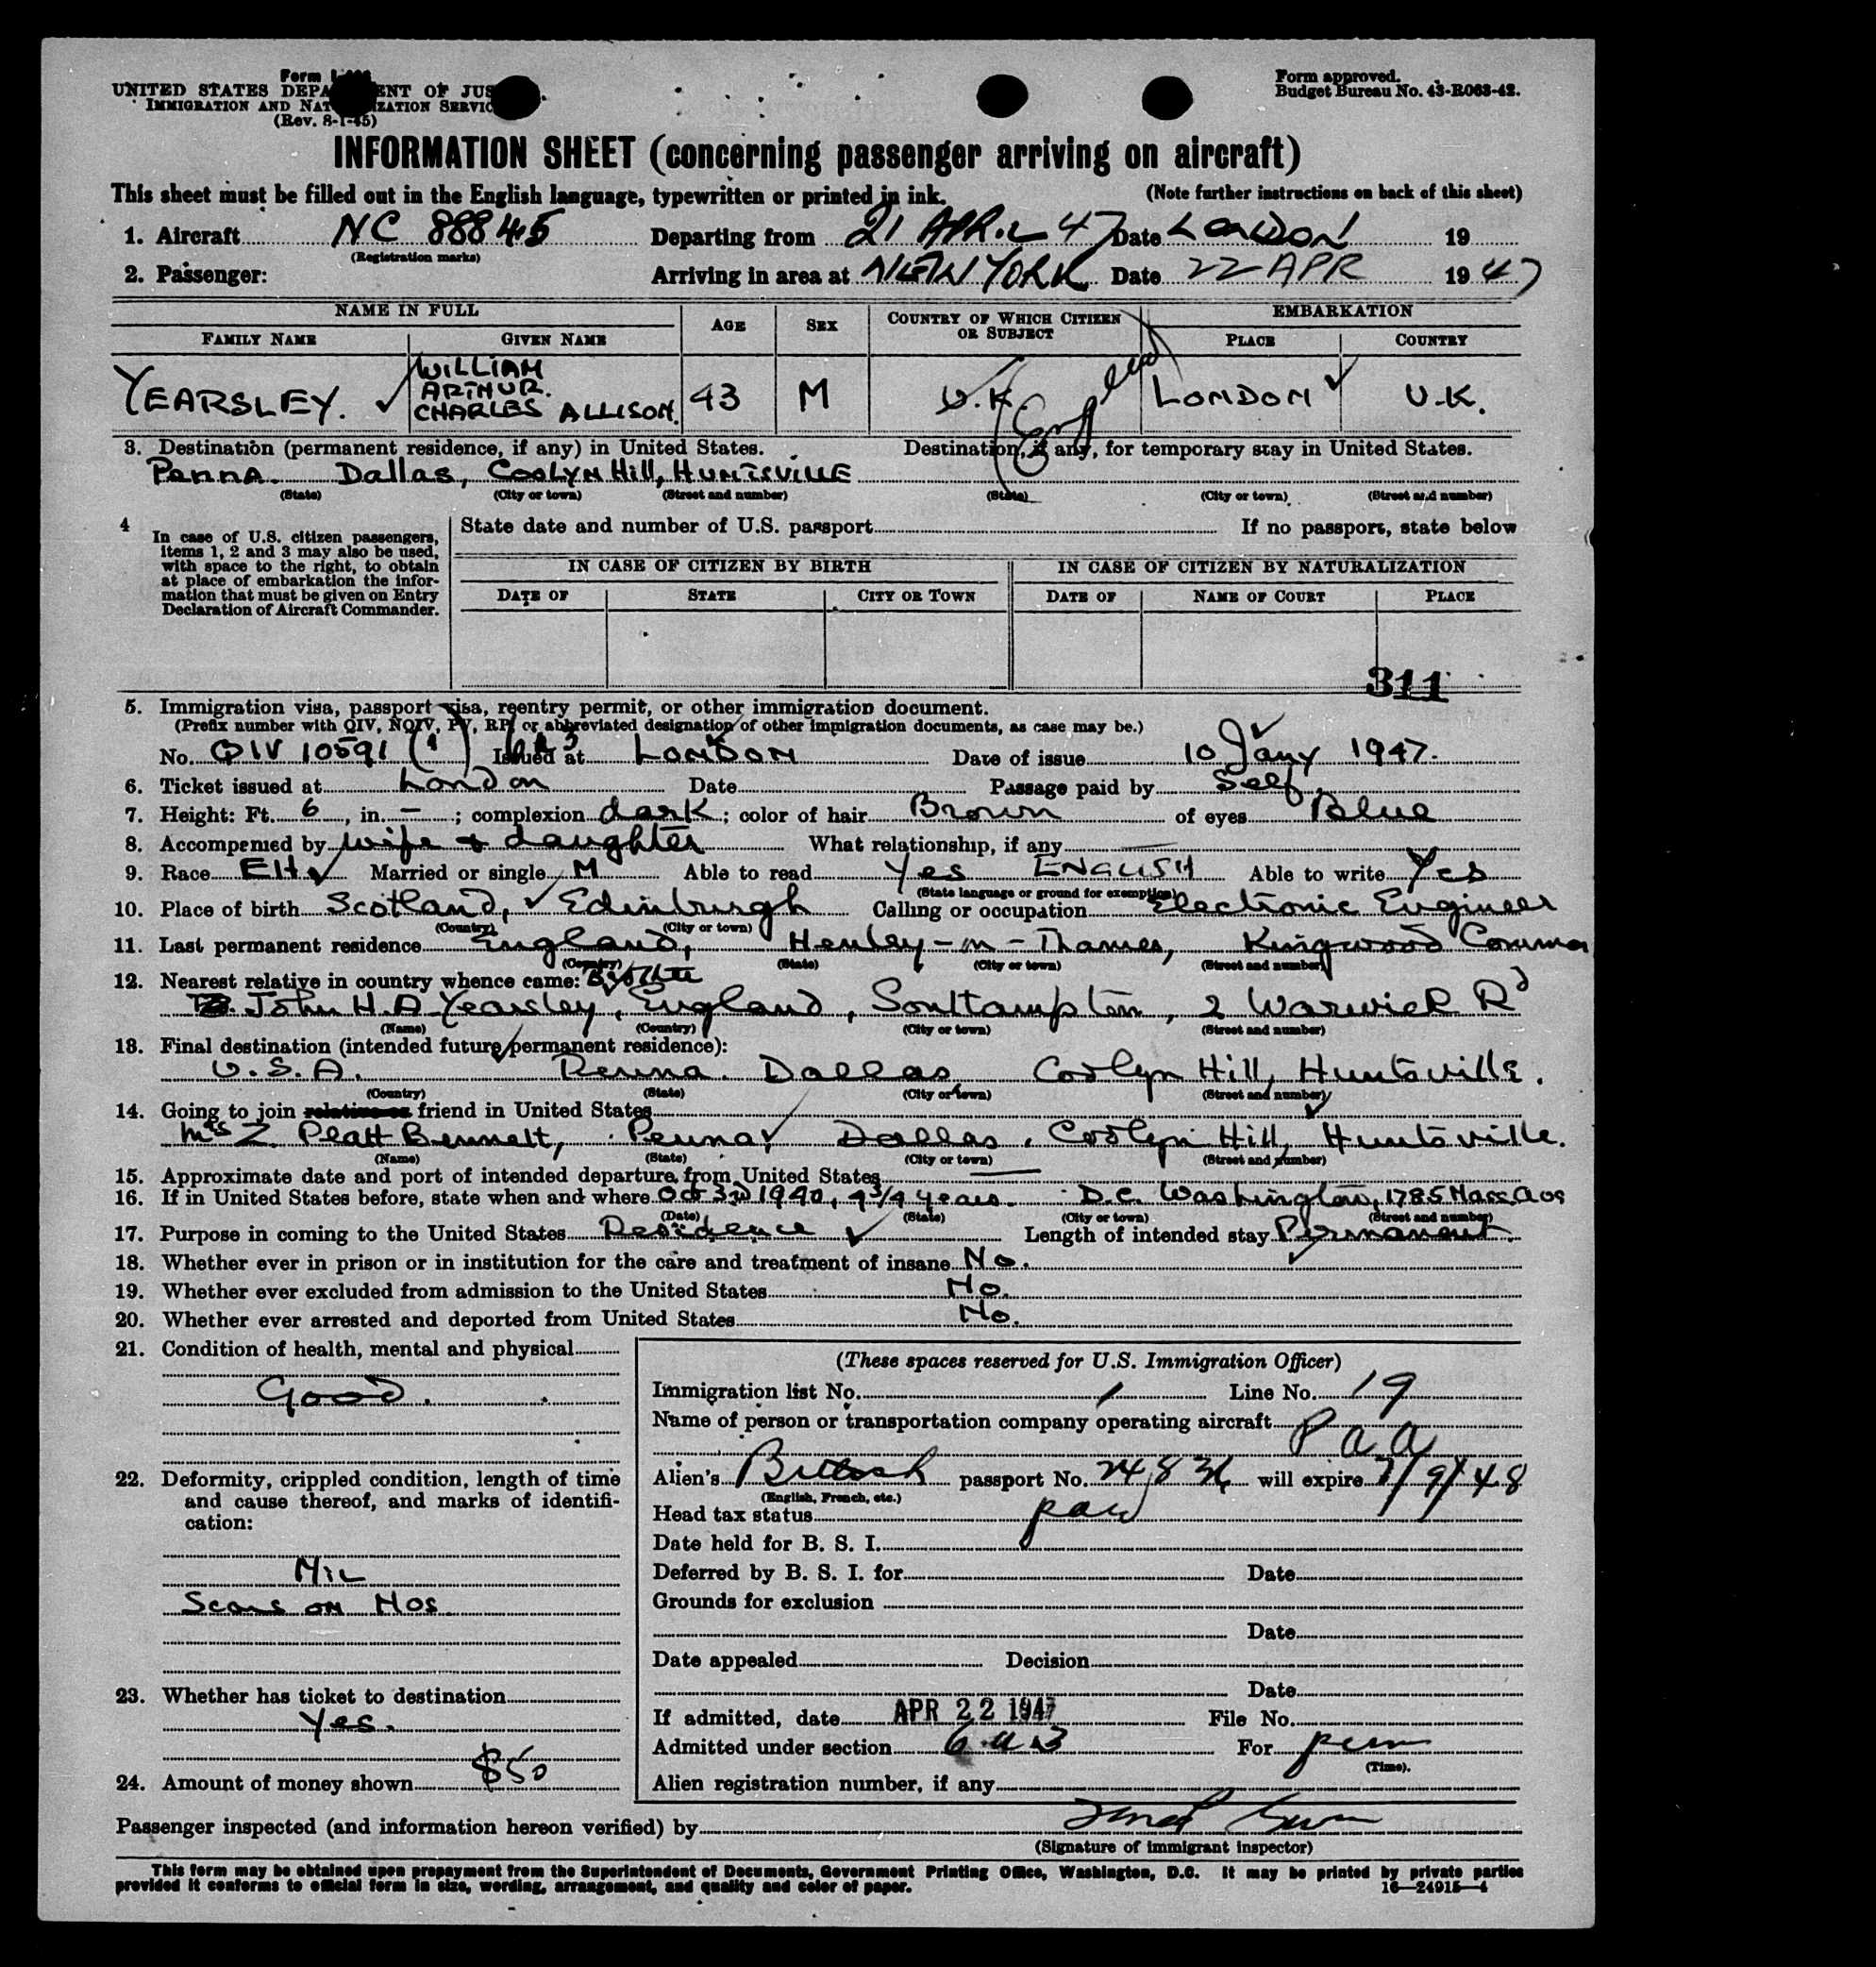 Form
UNITED STATES DEPA ENT OF JUS
IMMIGRATION AND NAT IZATION SERVIC
(Rev. 8-1-45)
Form approved.
Budget Bureau No. 43-R063-42.
INFORMATION SHEET (concerning passenger arriving on aircraft)
This sheet must be filled out in the English language, typewritten or printed in ink. (Note further instructions on back of this sheet)
1. Aircraft NC 88845 Departing from 21 APRIL 47 Date LONDON 19
(Registration marks)
2. Passenger: Arriving in area at NEW YORK Date 22 APR 1947
NAME IN FULL AGE SEX COUNTRY OF WHICH CITIZEN OR SUBJECT EMBARKATION
FAMILY NAME GIVEN NAME PLACE COUNTRY
YEARSLEY. WILLIAM ARTHUR. CHARLES ALLISON. 43 M U.K. (England) LONDON U.K.
3. Destination (permanent residence, if any) in United States. Destination, if any, for temporary stay in United States.
Penna. Dallas, Coolyn Hill, HUNTSVILLE
(State) (City or town) (Street and number) (State) (City or town) (Street and number)
4 In case of U.S. citizen passengers, items 1, 2 and 3 may also be used, with space to the right, to obtain at place of embarkation the information that must be given on Entry Declaration of Aircraft Commander.
State date and number of U.S. passport If no passport, state below
IN CASE OF CITIZEN BY BIRTH IN CASE OF CITIZEN BY NATURALIZATION
DATE OF STATE CITY OR TOWN DATE OF NAME OF COURT PLACE
311
5. Immigration visa, passport visa, reentry permit, or other immigration document.
(Prefix number with QIV, NQIV, PV, RP, or abbreviated designation of other immigration documents, as case may be.)
No. QIV 10591 (1) Issued at LONDON Date of issue 10 Jany 1947.
6. Ticket issued at London Date Passage paid by Self
7. Height: Ft. 6, in. — ; complexion dark; color of hair Brown of eyes Blue
8. Accompanied by wife & daughter What relationship, if any
9. Race EH Married or single M Able to read Yes ENGLISH Able to write Yes
(State language or ground for exemption)
10. Place of birth Scotland, Edinburgh Calling or occupation Electronic Engineer
(Country) (City or town)
11. Last permanent residence England, Henley-on-Thames, Kingwood Common
(Country) (State) (City or town) (Street and number)
12. Nearest relative in country whence came: Brother
John H.A Yearsley, England, Southampton, 2 Warwick Rd
(Name) (Country) (City or town) (Street and number)
13. Final destination (intended future permanent residence):
U.S.A. Penna. Dallas Coolyn Hill, Huntsville.
(Country) (State) (City or town) (Street and number)
14. Going to join relative or friend in United States
Mrs Z. Platt Bennett, Penna, Dallas, Coolyn Hill, Huntsville.
(Name) (State) (City or town) (Street and number)
15. Approximate date and port of intended departure from United States —
16. If in United States before, state when and where Oct 3rd 1940, 4 3/4 years. D.C. Washington, 1785 Mass Ave
(Date) (State) (City or town) (Street and number)
17. Purpose in coming to the United States Residence Length of intended stay Permanent.
18. Whether ever in prison or in institution for the care and treatment of insane No.
19. Whether ever excluded from admission to the United States No.
20. Whether ever arrested and deported from United States No.
21. Condition of health, mental and physical
Good.
22. Deformity, crippled condition, length of time and cause thereof, and marks of identification:
NIL
Scars on Nos
23. Whether has ticket to destination
Yes.
24. Amount of money shown $50
(These spaces reserved for U.S. Immigration Officer)
Immigration list No. 1 Line No. 19
Name of person or transportation company operating aircraft
P a a
Alien's British passport No. 24836 will expire 7/9/48
(English, French, etc.)
Head tax status paid
Date held for B. S. I.
Deferred by B. S. I. for Date
Grounds for exclusion
Date
Date appealed Decision
Date
If admitted, date APR 22 1947 File No.
Admitted under section 6 a 3 For perm
(Time).
Alien registration number, if any
Passenger inspected (and information hereon verified) by
(Signature of immigrant inspector)
This form may be obtained upon prepayment from the Superintendent of Documents, Government Printing Office, Washington, D.C. It may be printed by private parties
provided it conforms to official form in size, wording, arrangement, and quality and color of paper. 16—24915-4